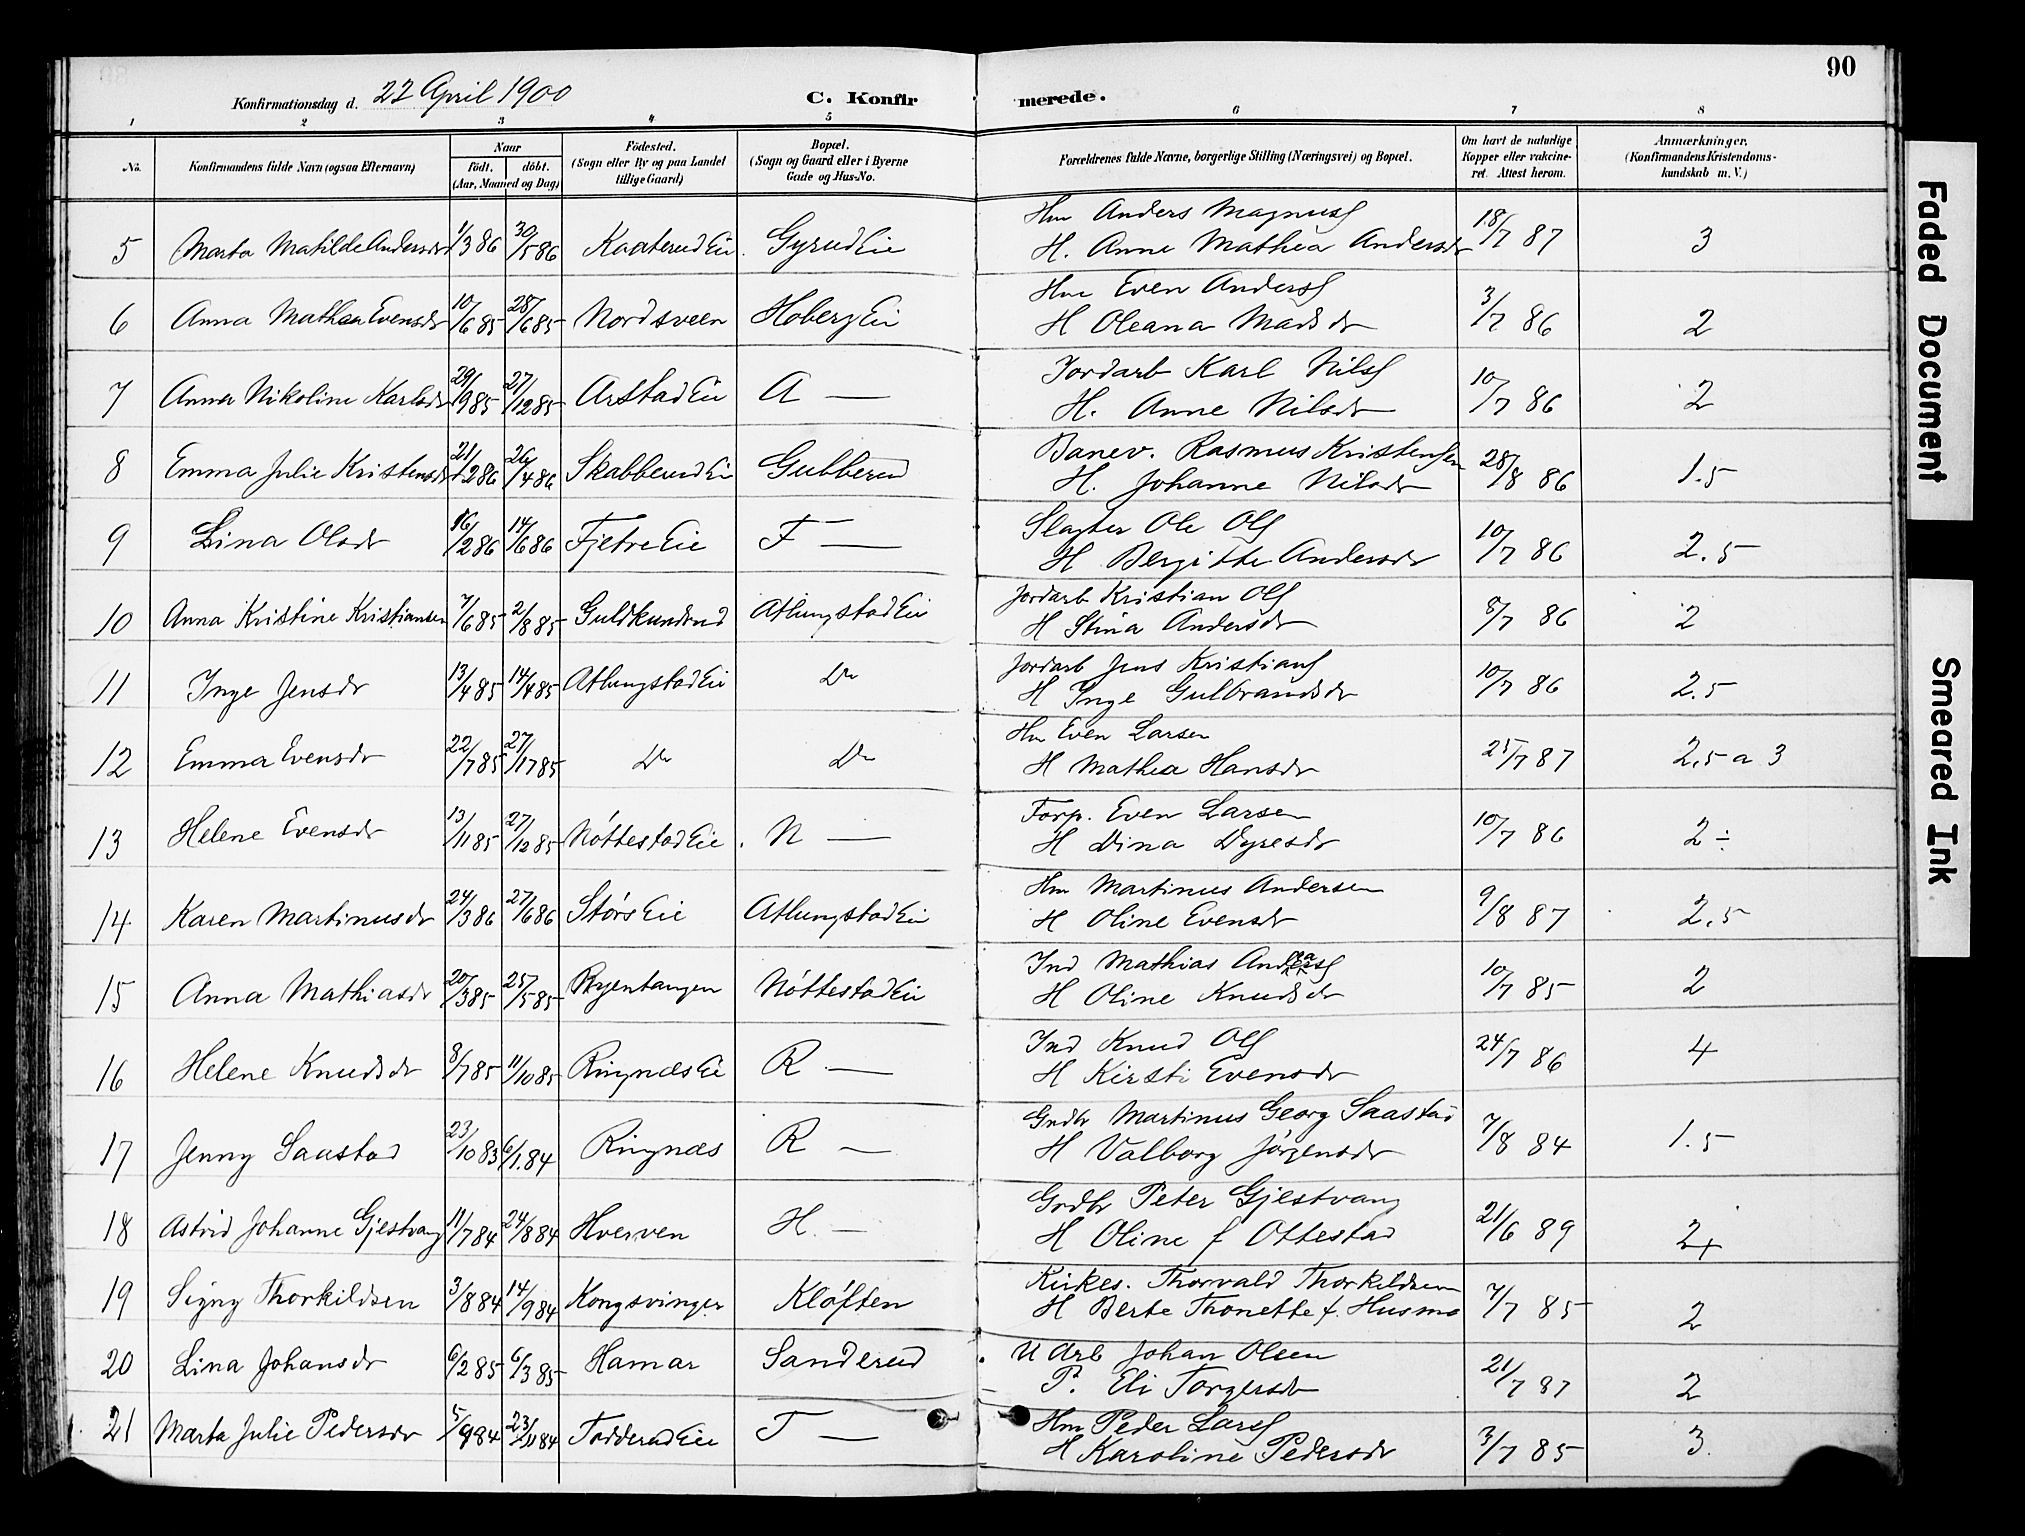 90
Konfirmationsdag d. 22 April 1900 C. Konfirmerede.
1 2 3 4 5 6 7 8
No. Konfirmandens fulde Navn (ogsaa Efternavn) Naar födt. döbt. (Aar, Maaned og Dag) Födested. (Sogn eller By og paa Landet tillige Gaard) Bopæl. (Sogn og Gaard eller i Byerne Gade og Hus-No. Forældrenes fulde Navne, borgerlige Stilling (Næringsvei) og Bopæl. Om havt de naturlige Kopper eller vakcineret. Attest herom. Anmærkninger. (Konfirmandens Kristendomskundskab m. V.)
5 Marta Matilde Andersdr 1/3 86 30/5 86 Kaaterud Eie. Gyrud Eie Hm Anders Magnusf 18/7 87 3
H. Anne Mathea Andersdr
6 Anna Mathea Evensdr 10/6 85 28/6 85 Nordsveen Hoberg Eie Hm Even Andersf 3/7 86 2
H Oleana Madsdr
7 Anna Nikoline Karlsdr 29/9 85 27/12 85 Arstad Eie A — Jordarb Karl Nilsf 10/7 86 2
H. Anne Nilsdr
8 Emma Julie Kristensdr 21/2 86 26/4 86 Skabberud Eie Gubberud Banev. Rasmus Kristensen 28/8 86 1.5
H. Johanne Nilsdr
9 Lina Olsdr 16/2 86 14/6 86 Fjetre Eie F — Slagter Ole Olf 10/7 86 2.5
H Bergitte Andersdr
10 Anna Kristine Kristiansen 7/6 85 2/8 85 Guldkundrud Atlungstad Eie Jordarb Kristian Olf 8/7 86 2
H Stina Andersdr
11 Inge Jensdr 13/4 85 14/4 85 Atlungstad Eie Do Jordarb Jens Kristiansf 10/7 86 2.5
H Inge Gulbrandsdr
12 Emma Evensdr 22/7 85 27/17 85 Do Do Hm Even Larsen 25/7 87 2,5 a 3
H Mathea Hansdr
13 Helene Evensdr 13/11 85 27/12 85 Nöttestad Eie. N — Forp. Even Larsen 10/7 86 2 ÷
H Dina Dyresdr
14 Karen Martinusdr 24/3 86 27/6 86 Störs Eie Atlungstad Eie Hm Martinus Andersen 9/8 87 2,5
H Oline Evensdr
15 Anna Mathiasdr 20/3 85 25/5 85 Ryentangen Nöttestad Eie Ind Mathias Andreasf 10/7 85 2
H Oline Knudsdr
16 Helene Knudsdr 8/7 85 11/10 85 Ringnæs Eie R — Ind Knud Olf 24/7 86 4
H Kirsti Evensdr
17 Jenny Saastad 23/10 83 6/1.84 Ringnæs R — Grdbr Martinus Georg Saastad 7/8 84 1.5
H Valborg Jörgensdr
18 Astrid Johanne Gjestvang 11/7 84 24/8 84 Hverven H. — Grdbr Peter Gjestvang 21/6 89 2+
H Oline f Ottestad
19 Signy Thorkildsen 3/8 84 14/9 84 Kongsvinger Klöften Kirkes. Thorvald Thorkildsen 7/7 85 2
H Berte Thonette f. Husmo
20 Lina Johansdr 6/2 85 6/3 85 Hamar Sanderud U Arb Johan Olsen 21/7 87 2
P. Eli Torgersdr
21 Marta Julie Pedersdr 5/9 84 23/11 84 Todderud Eie T — Hm Peder Larsf 3/7 85 3.
H Karoline Pedersdr
Faded Document
Smeared Ink